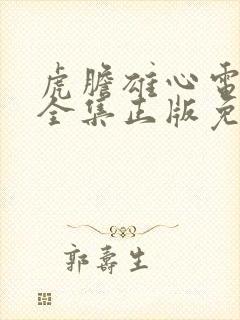 虎胆雄心電
全集正版免
郭寿生